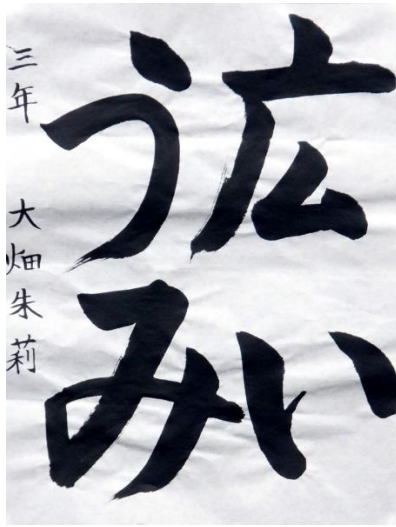 広い
うみ
三年 大畑朱莉